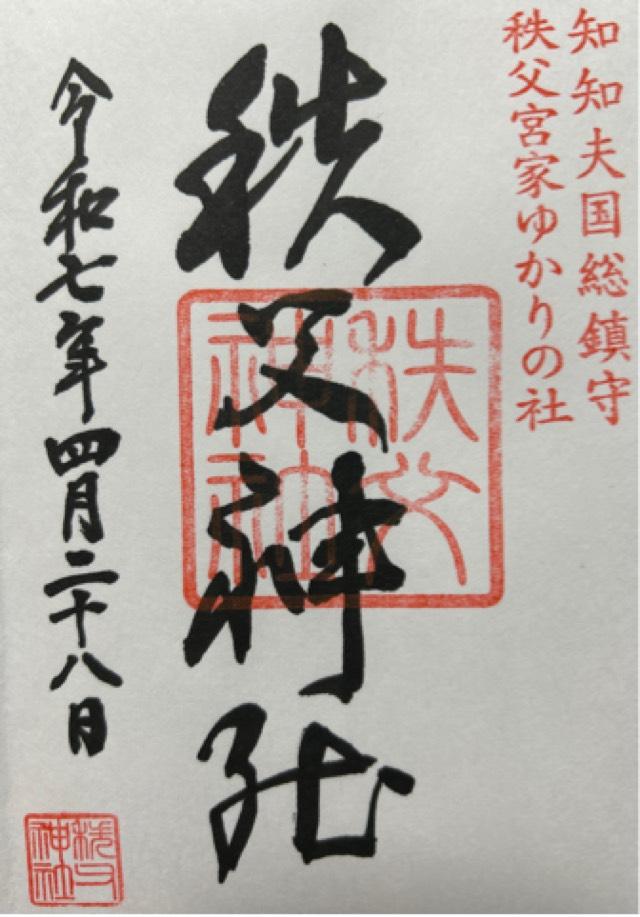 知知夫国総鎮守
秩父宮家ゆかりの社
秩父神社
秩父神社
令和七年四月二十八日
秩父神社